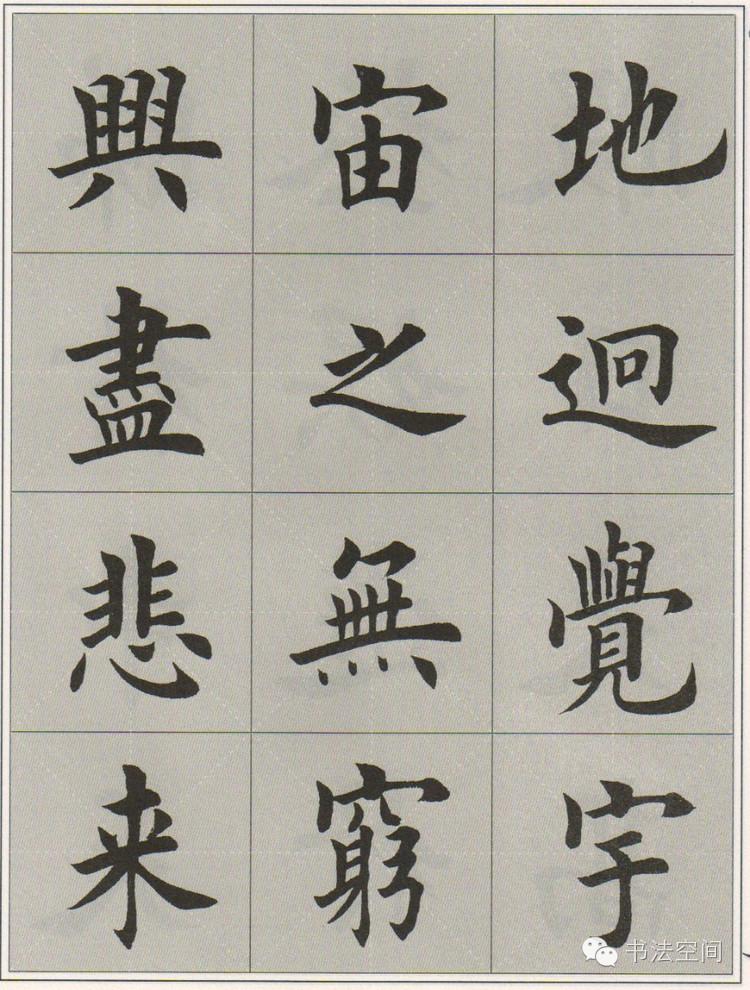 地迥覺宇
宙之無窮
興盡悲来
书法空间